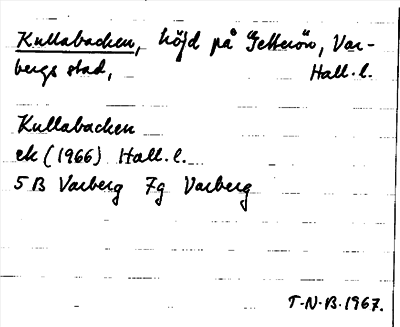 Kullabacken, höjd på Getterön, Var-
bergs stad, Hall. l.
Kullabacken
ek (1966) Hall. l.
5 B Varberg 7g Varberg
T.N.B. 1967.